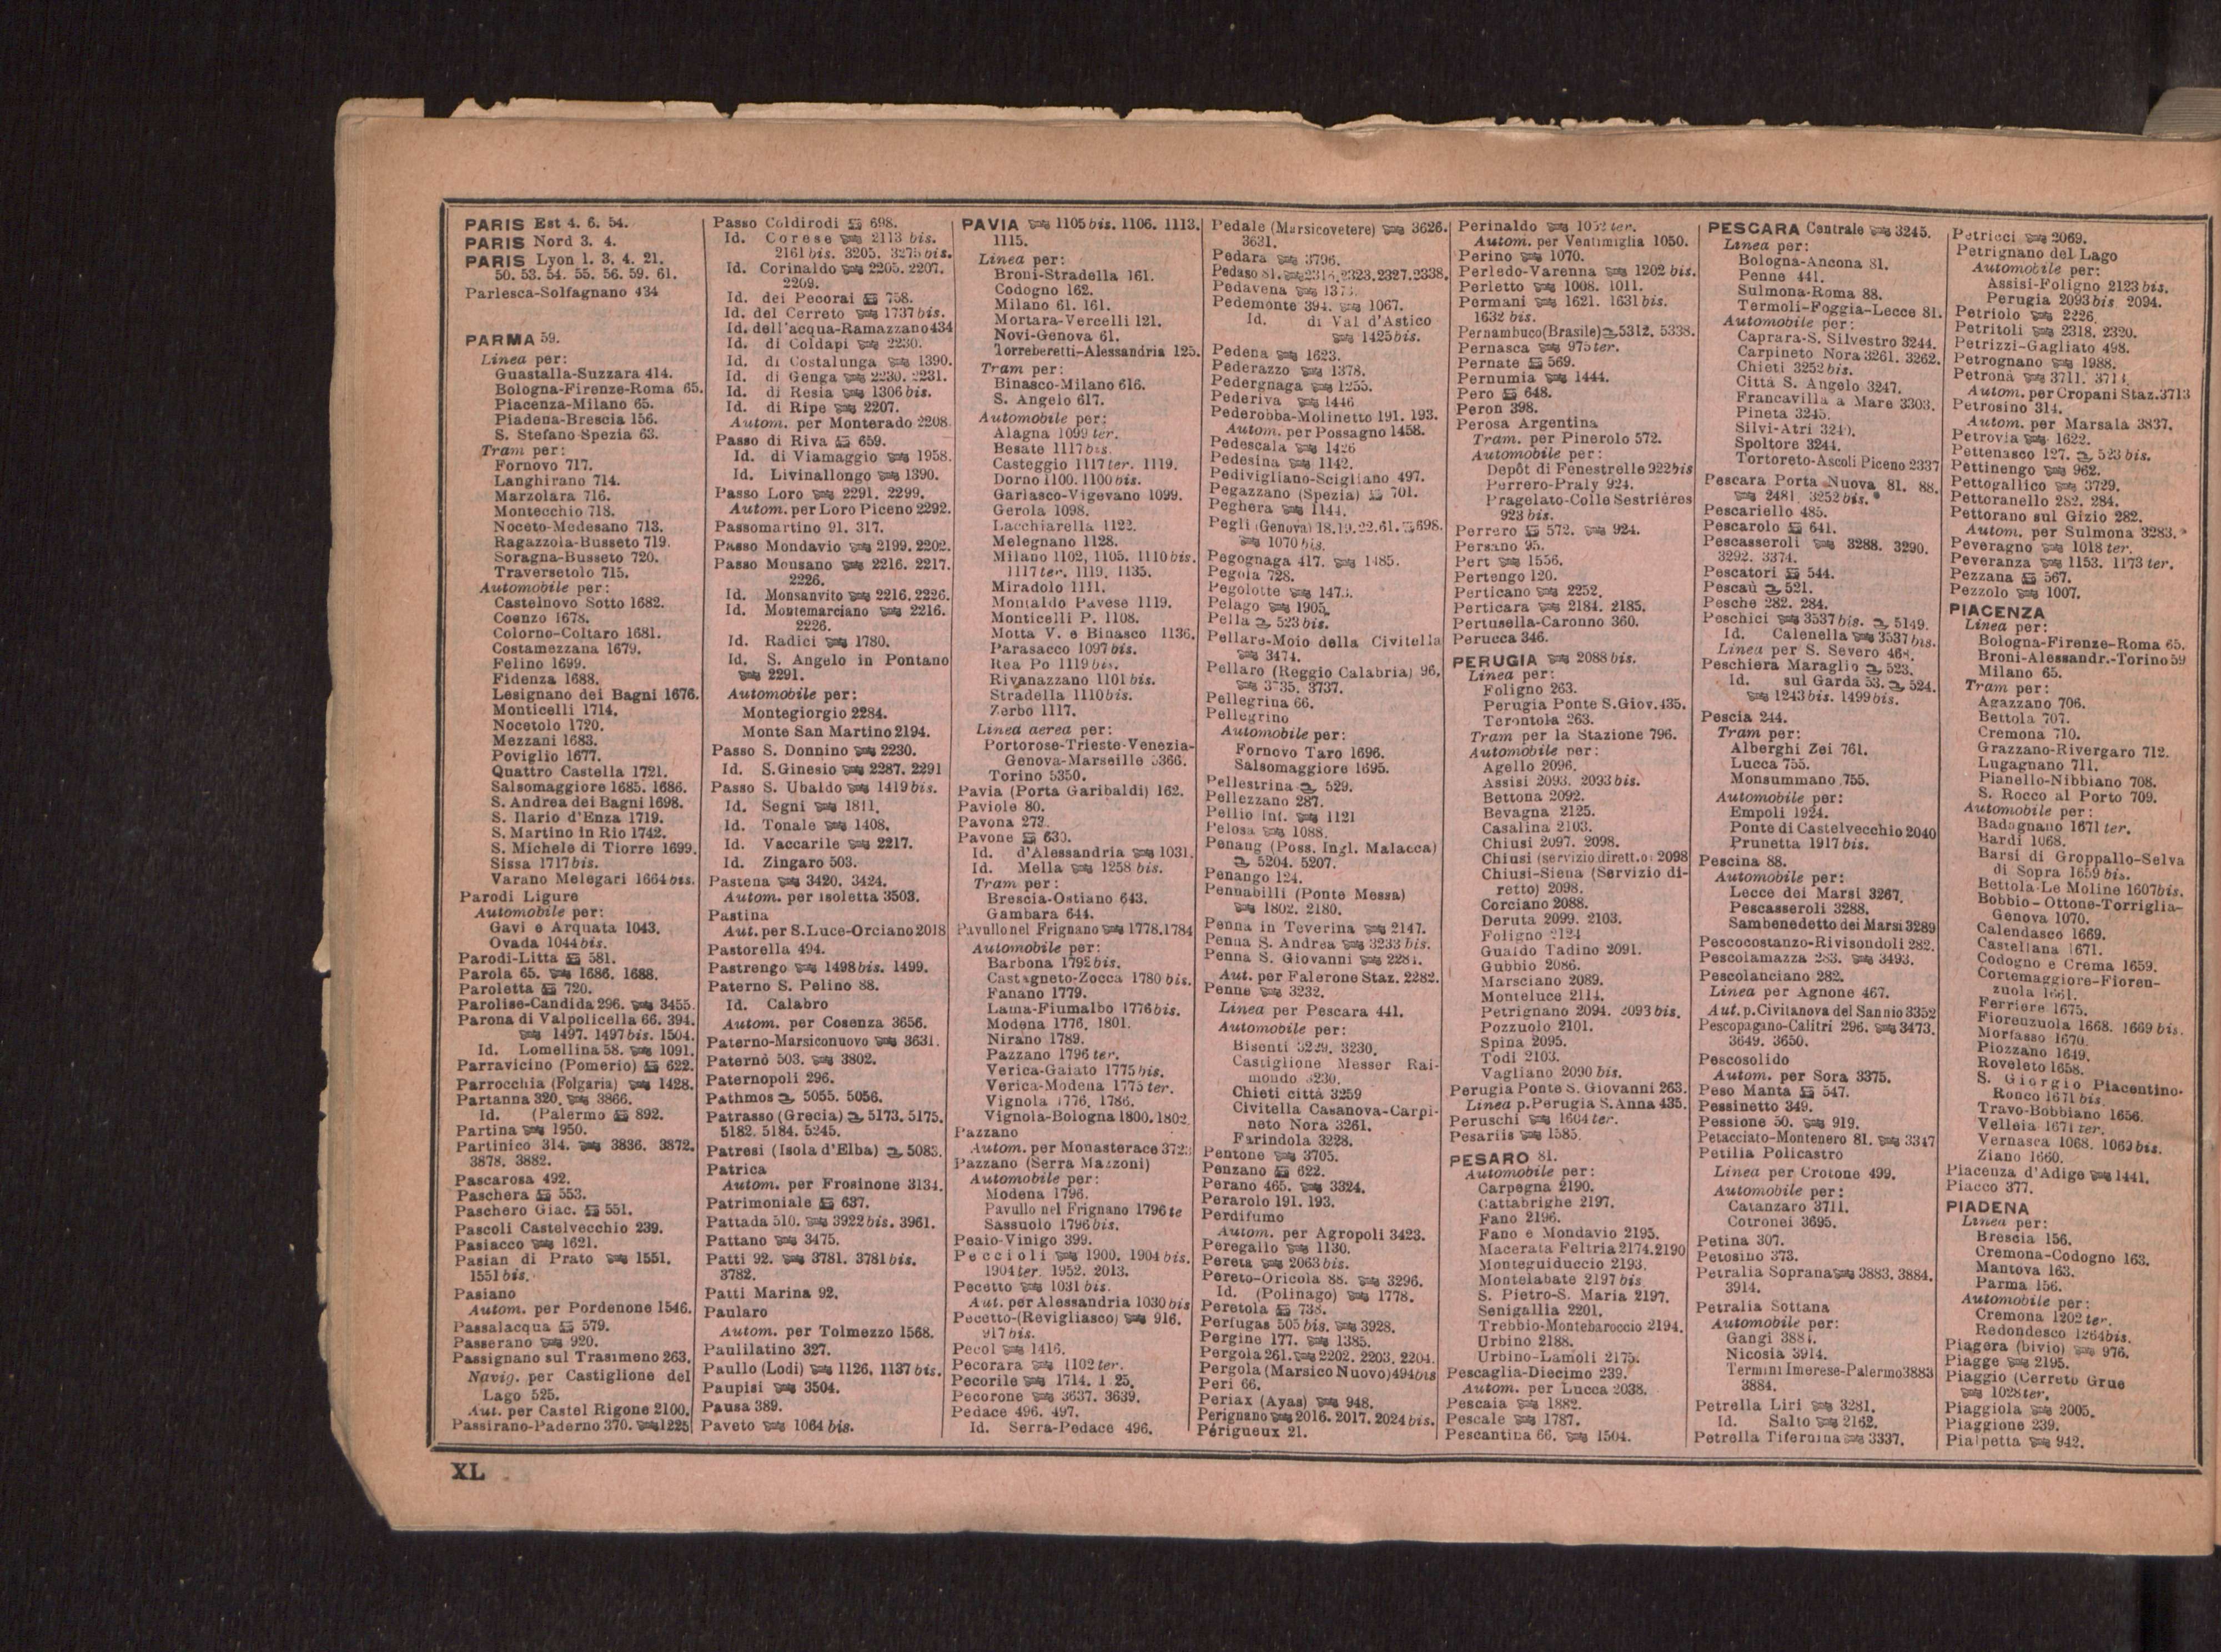 PARIS Est 4. 6. 54.
PARIS Nord 3. 4.
PARIS Lyon 1. 3, 4. 21.
50. 53. 54. 55. 56. 59. 61.
Parlesca-Solfagnano 434
PARMA 59.
Linea per:
Guastalla-Suzzara 414.
Bologna-Firenze-Roma 65.
Piacenza-Milano 65.
Piadena-Brescia 156.
S. Stefano-Spezia 63.
Tram per:
Fornovo 717.
Langhirano 714.
Marzolara 716.
Montecchio 718.
Noceto-Medesano 713.
Ragazzola-Busseto 719.
Soragna-Busseto 720.
Traversetolo 715.
Automobile per:
Castelnovo Sotto 1682.
Coenzo 1678.
Colorno-Coltaro 1681.
Costamezzana 1679.
Felino 1699.
Fidenza 1688.
Lesignano dei Bagni 1676.
Monticelli 1714.
Nocetolo 1720.
Mezzani 1683.
Poviglio 1677.
Quattro Castella 1721.
Salsomaggiore 1685. 1686.
S. Andrea dei Bagni 1698.
S. Ilario d'Enza 1719.
S. Martino in Rio 1742.
S. Michele di Tiorre 1699.
Sissa 1717 bis.
Varano Melegari 1664 bis.
Parodi Ligure
Automobile per:
Gavi e Arquata 1043.
Ovada 1044 bis.
Parodi-Litta 581.
Parola 65. 1686. 1688.
Paroletta 720.
Parolise-Candida 296. 3455.
Parona di Valpolicella 66. 394.
1497. 1497 bis. 1504.
Id. Lomellina 58. 1091.
Parravicino (Pomerio) 622.
Parrocchia (Folgaria) 1428.
Partanna 320. 3866.
Id. (Palermo 892.
Partina 1950.
Partinico 314. 3836. 3872.
3878. 3882.
Pascarosa 492.
Paschera 553.
Paschero Giac. 551.
Pascoli Castelvecchio 239.
Pasiacco 1621.
Pasian di Prato 1551.
1551 bis.
Pasiano
Autom. per Pordenone 1546.
Passalacqua 579.
Passerano 920.
Passignano sul Trasimeno 263.
Navig. per Castiglione del
Lago 525.
Aut. per Castel Rigone 2100.
Passirano-Paderno 370. 1225
Passo Coldirodi 698.
Id. Corese 2113 bis.
2161 bis. 3205. 3275 bis.
Id. Corinaldo 2205. 2207.
2209.
Id. dei Pecorai 758.
Id. del Cerreto 1737 bis.
Id. dell'acqua-Ramazzano 434
Id. di Coldapi 2230.
Id. di Costalunga 1390.
Id. di Genga 2230. 2231.
Id. di Resia 1306 bis.
Id. di Ripe 2207.
Autom. per Monterado 2208.
Passo di Riva 659.
Id. di Viamaggio 1958.
Id. Livinallongo 1390.
Passo Loro 2291. 2299.
Autom. per Loro Piceno 2292.
Passomartino 91. 317.
Passo Mondavio 2199. 2202.
Passo Monsano 2216. 2217.
2226.
Id. Monsanvito 2216. 2226.
Id. Montemarciano 2216.
2226.
Id. Radici 1780.
Id. S. Angelo in Pontano
2291.
Automobile per:
Montegiorgio 2284.
Monte San Martino 2194.
Passo S. Donnino 2230.
Id. S. Ginesio 2287. 2291
Passo S. Ubaldo 1419 bis.
Id. Segni 1811.
Id. Tonale 1408.
Id. Vaccarile 2217.
Id. Zingaro 503.
Pastena 3420. 3424.
Autom. per Isoletta 3503.
Pastina
Aut. per S. Luce-Orciano 2018
Pastorella 494.
Pastrengo 1498 bis. 1499.
Paterno S. Pelino 88.
Id. Calabro
Autom. per Cosenza 3656.
Paterno-Marsiconuovo 3631.
Paternò 503. 3802.
Paternopoli 296.
Pathmos 5055. 5056.
Patrasso (Grecia) 5173. 5175.
5182. 5184. 5245.
Patresi (Isola d'Elba) 5083.
Patrica
Autom. per Frosinone 3134.
Patrimoniale 637.
Pattada 510. 3922 bis. 3961.
Pattano 3475.
Patti 92. 3781. 3781 bis.
3782.
Patti Marina 92.
Paularo
Autom. per Tolmezzo 1568.
Paulilatino 327.
Paullo (Lodi) 1126. 1137 bis.
Paupisi 3504.
Pausa 389.
Paveto 1064 bis.
PAVIA 1105 bis. 1106. 1113.
1115.
Linea per:
Broni-Stradella 161.
Codogno 162.
Milano 61. 161.
Mortara-Vercelli 121.
Novi-Genova 61.
Torreberetti-Alessandria 125.
Tram per:
Binasco-Milano 616.
S. Angelo 617.
Automobile per:
Alagna 1099 ter.
Besate 1117 bis.
Casteggio 1117 ter. 1119.
Dorno 1100. 1100 bis.
Garlasco-Vigevano 1099.
Gerola 1098.
Lacchiarella 1122.
Melegnano 1128.
Milano 1102, 1105. 1110 bis.
1117 ter. 1119. 1135.
Miradolo 1111.
Montaldo Pavese 1119.
Monticelli P. 1108.
Motta V. e Binasco 1136.
Parasacco 1097 bis.
Rea Po 1119 bis.
Rivanazzano 1101 bis.
Stradella 1110 bis.
Zerbo 1117.
Linea aerea per:
Portorose-Trieste-Venezia-
Genova-Marseille 5366.
Torino 5350.
Pavia (Porta Garibaldi) 162.
Paviole 80.
Pavona 272.
Pavone 630.
Id. d'Alessandria 1031.
Id. Mella 1258 bis.
Tram per:
Brescia-Ostiano 643.
Gambara 644.
Pavullo nel Frignano 1778. 1784
Automobile per:
Barbona 1792 bis.
Castagneto-Zocca 1780 bis.
Fanano 1779.
Lama-Fiumalbo 1776 bis.
Modena 1776. 1801.
Nirano 1789.
Pazzano 1796 ter.
Verica-Gaiato 1775 bis.
Verica-Modena 1775 ter.
Vignola 1776. 1786.
Vignola-Bologna 1800. 1802
Pazzano
Autom. per Monasterace 3723
Pazzano (Serra Mazzoni)
Automobile per:
Modena 1796.
Pavullo nel Frignano 1796 te
Sassuolo 1796 bis.
Peaio-Vinigo 399.
Peccioli 1900. 1904 bis.
1904 ter. 1952. 2013.
Pecetto 1031 bis.
Aut. per Alessandria 1030 bis
Pecetto-(Revigliasco) 916.
917 bis.
Pecol 1416.
Pecorara 1102 ter.
Pecorile 1714.
Pecorone 3637. 3639.
Pedace 496. 497.
Id. Serra-Pedace 496.
Pedale (Marsicovetere) 3626.
3631.
Pedara 3796.
Pedaso 81. 2316. 2323. 2327. 2338.
Pedavena
Pedemonte 394. 1067.
Id. di Val d'Astico
1425 bis.
Pedena 1623.
Pederazzo 1378.
Pedergnaga 1255.
Pederiva 1446
Pederobba-Molinetto 191. 193.
Autom. per Possagno 1458.
Pedescala 1426
Pedesina 1142.
Pedivigliano-Scigliano 497.
Pegazzano (Spezia) 701.
Peghera 1144.
Pegli (Genova) 18. 19. 22. 61. 698.
1070 bis.
Pegognaga 417. 1485.
Pegola 728.
Pegolotte
Pelago 1905.
Pella 523 bis.
Pellare-Moio della Civitella
3474.
Pellaro (Reggio Calabria) 96.
3735. 3737.
Pellegrina 66.
Pellegrino
Automobile per:
Fornovo Taro 1696.
Salsomaggiore 1695.
Pellestrina 529.
Pellezzano 287.
Pellio Inf. 1121
Pelosa 1088.
Penang (Poss. Ingl. Malacca)
5204. 5207.
Penango 124.
Pennabilli (Ponte Messa)
1802. 2180.
Penna in Teverina 2147.
Penna S. Andrea 3233 bis.
Penna S. Giovanni 2284.
Aut. per Falerone Staz. 2282.
Penne 3232.
Linea per Pescara 441.
Automobile per:
Bisenti 3229. 3230.
Castiglione Messer Rai-
mondo 3230.
Chieti città 3259
Civitella Casanova-Carpi-
neto Nora 3261.
Farindola 3228.
Pentone 3705.
Penzano 622.
Perano 465. 3324.
Perarolo 191. 193.
Perdifumo
Autom. per Agropoli 3423.
Peregallo 1130.
Pereta 2063 bis.
Pereto-Oricola 88. 3296.
Id. (Polinago) 1778.
Peretola 738.
Perfugas 505 bis. 3928.
Pergine 177. 1385.
Pergola 261. 2202. 2203. 2204.
Pergola (Marsico Nuovo) 494 bis
Peri 66.
Periax (Ayas) 948.
Perignano 2016. 2017. 2024 bis.
Périgueux 21.
Perinaldo 1052 ter.
Autom. per Ventimiglia 1050.
Perino 1070.
Perledo-Varenna 1202 bis.
Perletto 1008. 1011.
Permani 1621. 1631 bis.
1632 bis.
Pernambuco (Brasile) 5312. 5338.
Pernasca 975 ter.
Pernate 569.
Pernumia 1444.
Pero 648.
Peron 398.
Perosa Argentina
Tram. per Pinerolo 572.
Automobile per:
Depôt di Fenestrelle 922 bis
Perrero-Praly 924.
Pragelato-Colle Sestrières
923 bis.
Perrero 572. 924.
Persano 95.
Pert 1556.
Pertengo 120.
Perticano 2252.
Perticara 2184. 2185.
Pertusella-Caronno 360.
Perucca 346.
PERUGIA 2088 bis.
Linea per:
Foligno 263.
Perugia Ponte S. Giov. 435.
Terontola 263.
Tram per la Stazione 796.
Automobile per:
Agello 2096.
Assisi 2093. 2093 bis.
Bettona 2092.
Bevagna 2125.
Casalina 2103.
Chiusi 2097. 2098.
Chiusi (servizio dirett.o) 2098
Chiusi-Siena (Servizio di-
retto) 2098.
Corciano 2088.
Deruta 2099. 2103.
Foligno 2124
Gualdo Tadino 2091.
Gubbio 2086.
Marsciano 2089.
Monteluce 2114.
Petrignano 2094. 2093 bis.
Pozzuolo 2101.
Spina 2095.
Todi 2103.
Vagliano 2090 bis.
Perugia Ponte S. Giovanni 263.
Linea p. Perugia S. Anna 435.
Peruschi 1604 ter.
Pesariis 1585.
PESARO 81.
Automobile per:
Carpegna 2190.
Gattabrighe 2197.
Fano 2196.
Fano e Mondavio 2195.
Macerata Feltria 2174. 2190
Monteguiduccio 2193.
Montelabate 2197 bis
S. Pietro-S. Maria 2197.
Senigallia 2201.
Trebbio-Montebaroccio 2194.
Urbino 2188.
Urbino-Lamoli 2175.
Pescaglia-Diecimo 239.
Autom. per Lucca 2038.
Pescaia 1882.
Pescale 1787.
Pescantina 66. 1504.
PESCARA Centrale 3245.
Linea per:
Bologna-Ancona 81.
Penne 441.
Sulmona-Roma 88.
Termoli-Foggia-Lecce 81.
Automobile per:
Caprara-S. Silvestro 3244.
Carpineto Nora 3261. 3262.
Chieti 3252 bis.
Città S. Angelo 3247.
Francavilla a Mare 3303.
Pineta 3245.
Silvi-Atri
Spoltore 3244.
Tortoreto-Ascoli Piceno 2337
Pescara Porta Nuova 81. 88.
2481. 3252 bis.
Pescariello 485.
Pescarolo 641.
Pescasseroli 3288. 3290.
3292. 3374.
Pescatori 544.
Pescaù 521.
Pesche 282. 284.
Peschici 3537 bis. 5149.
Id. Calenella 3537 bis.
Linea per S. Severo 468.
Peschiera Maraglio 523.
Id. sul Garda 53. 524.
1243 bis. 1499 bis.
Pescia 244.
Tram per:
Alberghi Zei 761.
Lucca 755.
Monsummano 755.
Automobile per:
Empoli 1924.
Ponte di Castelvecchio 2040
Prunetta 1917 bis.
Pescina 88.
Automobile per:
Lecce dei Marsi 3267.
Pescasseroli 3288.
Sambenedetto dei Marsi 3289
Pescocostanzo-Rivisondoli 282.
Pescolamazza 283. 3493.
Pescolanciano 282.
Linea per Agnone 467.
Aut. p. Civitanova del Sannio 3352
Pescopagano-Calitri 296. 3473.
3649. 3650.
Pescosolido
Autom. per Sora 3375.
Peso Manta 547.
Pessinetto 349.
Pessione 50. 919.
Petacciato-Montenero 81. 3347
Petilia Policastro
Linea per Crotone 499.
Automobile per:
Catanzaro 3711.
Cotronei 3695.
Petina 307.
Petosino 373.
Petralia Soprana 3883. 3884.
3914.
Petralia Sottana
Automobile per:
Gangi 3884.
Nicosia 3914.
Termini Imerese-Palermo 3883
3884.
Petrella Liri 3281.
Id. Salto 2162.
Petrella Tifernina 3337.
Petricci 2069.
Petrignano del Lago
Automobile per:
Assisi-Foligno 2123 bis.
Perugia 2093 bis 2094.
Petriolo 2226.
Petritoli 2318. 2320.
Petrizzi-Gagliato 498.
Petrognano 1988.
Petronà 3711. 3713.
Autom. per Cropani Staz. 3713
Petrosino 314.
Autom. per Marsala 3837.
Petrovia 1622.
Pettenasco 127. 523 bis.
Pettinengo 962.
Pettogallico 3729.
Pettoranello 282. 284.
Pettorano sul Gizio 282.
Autom. per Sulmona 3283.
Peveragno 1018 ter.
Peveranza 1153. 1173 ter.
Pezzana 567.
Pezzolo 1007.
PIACENZA
Linea per:
Bologna-Firenze-Roma 65.
Broni-Alessandr.-Torino 59
Milano 65.
Tram per:
Agazzano 706.
Bettola 707.
Cremona 710.
Grazzano-Rivergaro 712.
Lugagnano 711.
Pianello-Nibbiano 708.
S. Rocco al Porto 709.
Automobile per:
Badagnano 1671 ter.
Bardi 1068.
Barsi di Groppallo-Selva
di Sopra 1659 bis.
Bettola-Le Moline 1607 bis.
Bobbio-Ottone-Torriglia-
Genova 1070.
Calendasco 1669.
Castellana 1671.
Codogno e Crema 1659.
Cortemaggiore-Fioren-
zuola 1661.
Ferriere 1675.
Fiorenzuola 1668. 1669 bis.
Morfasso 1670.
Piozzano 1649.
Roveleto 1658.
S. Giorgio Piacentino-
Ronco 1671 bis
Travo-Bobbiano 1656.
Velleia 1671 ter.
Vernasca 1068. 1069 bis.
Ziano 1660.
Piacenza d'Adige 1441.
Piacco 377.
PIADENA
Linea per:
Brescia 156.
Cremona-Codogno 163.
Mantova 163.
Parma 156.
Automobile per:
Cremona 1202 ter.
Redondesco 1264 bis.
Piagera (bivio) 976.
Piagge 2195.
Piaggio (Cerreto Grue
1028 ter.
Piaggiola 2005.
Piaggione 239.
Pialpetta 942.
XL